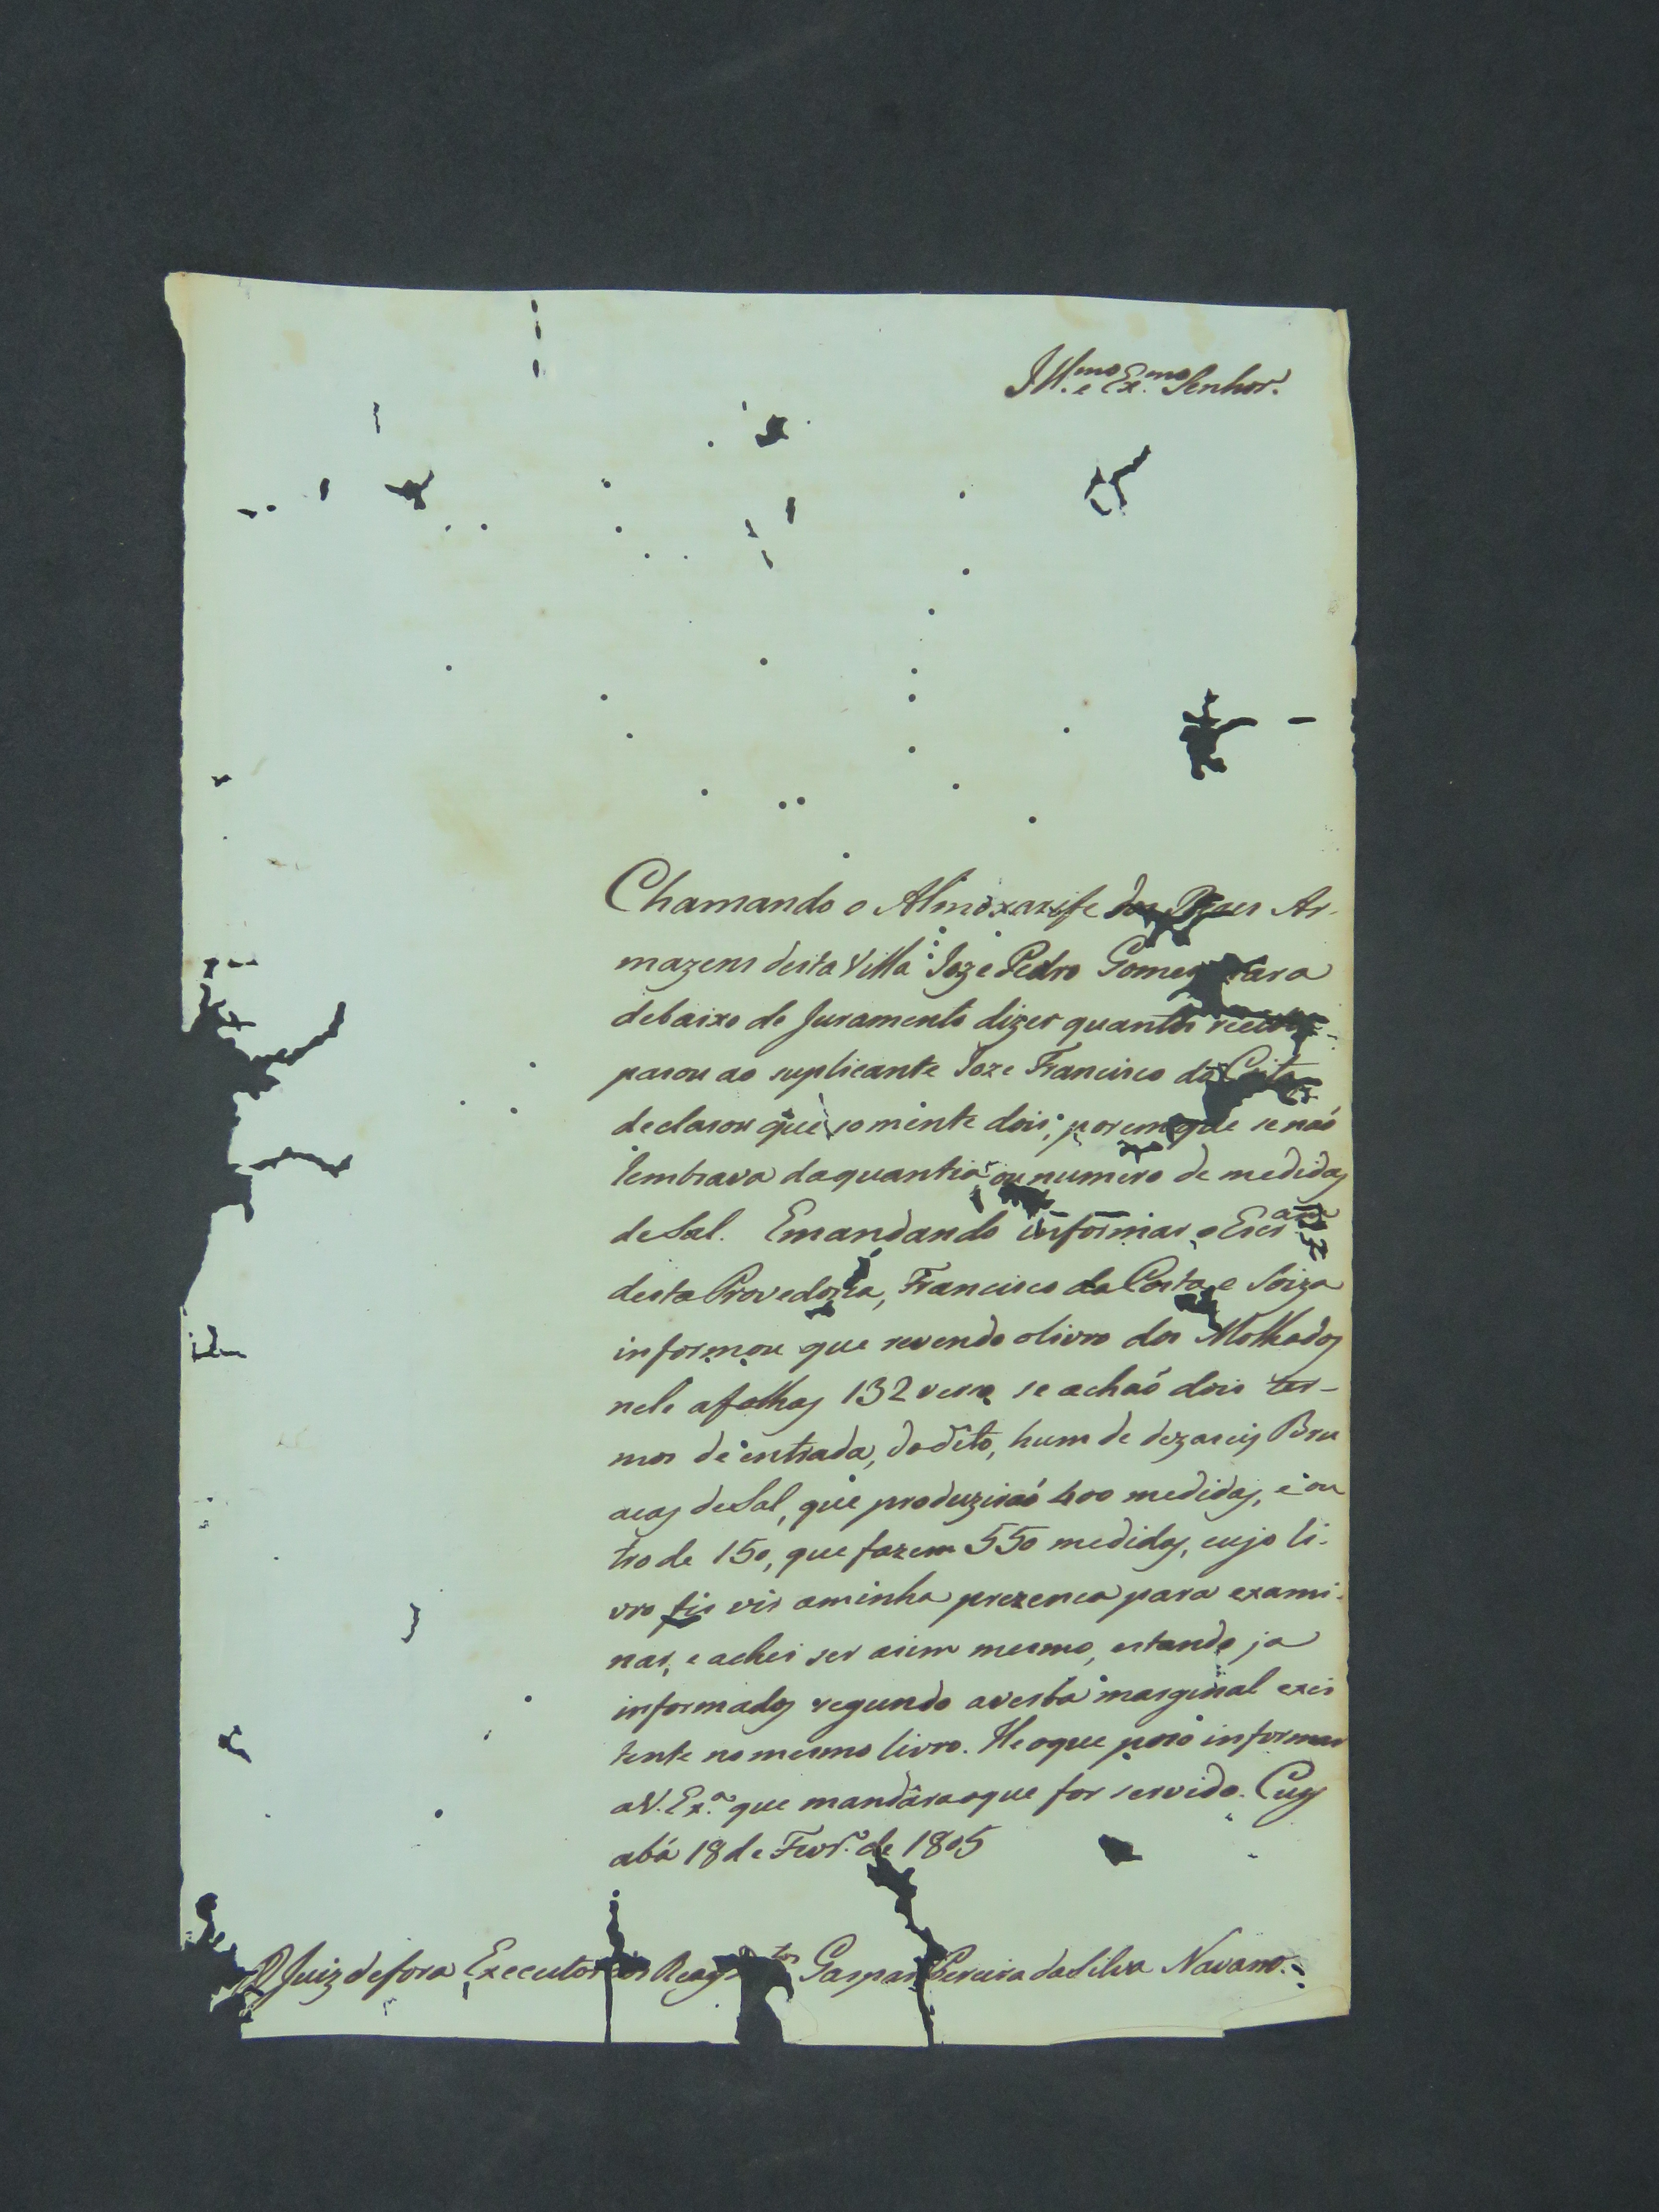 Ill.mo e Ex.mo Senhor.
Chamando o Almoxarife dos Reaes Ar-
mazens desta Villa Joze Pedro Gomes para
debaixo de Juramento dizer quantos
pasou ao suplicante Joze Francisco da Costa
declarou que somente dois; porem que se naó
lembrava daquantia ou numero de medidas
de Sal. Emandando informar o Escr.am
desta Provedoria, Francisco da Costa e Soiza
informou que revendo olivro dos Molhados
nele afolhas 132 verso se achaó dois ter-
mos de entrada, do dito, hum de dezaseis Bru
acas de Sal, que produziraó 400 medidas, e ou
tro de 150, que fazem 550 medidas, cujo li-
vro fis vir aminha prezenca para exami-
nar, e achei ser asim mesmo, estando ja
informados segundo averba marginal exis
tente no mesmo livro. He oque poso informar
aV. Ex.a que mandâra oque for servido. Cuy
abá 18 de Fevr.o de 1805
O Juiz defora Executor dos Gaspar Pereira da Silva Navarro.